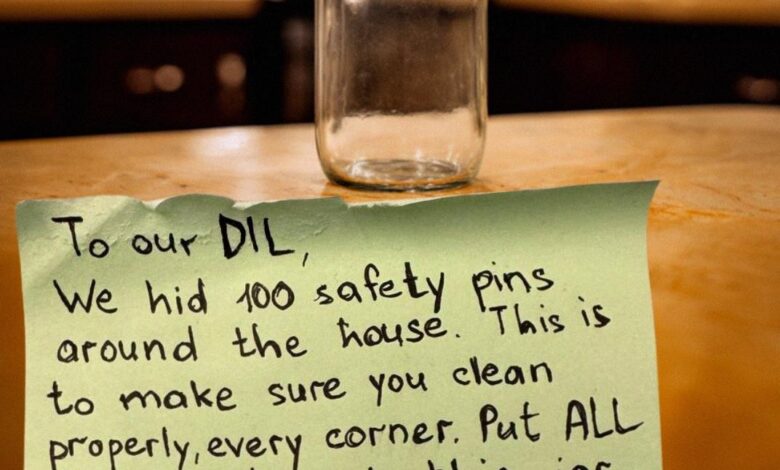 To our DIL,
We hid 100 safety pins
around the house. This is
to make sure you clean
properly, every corner. Put ALL